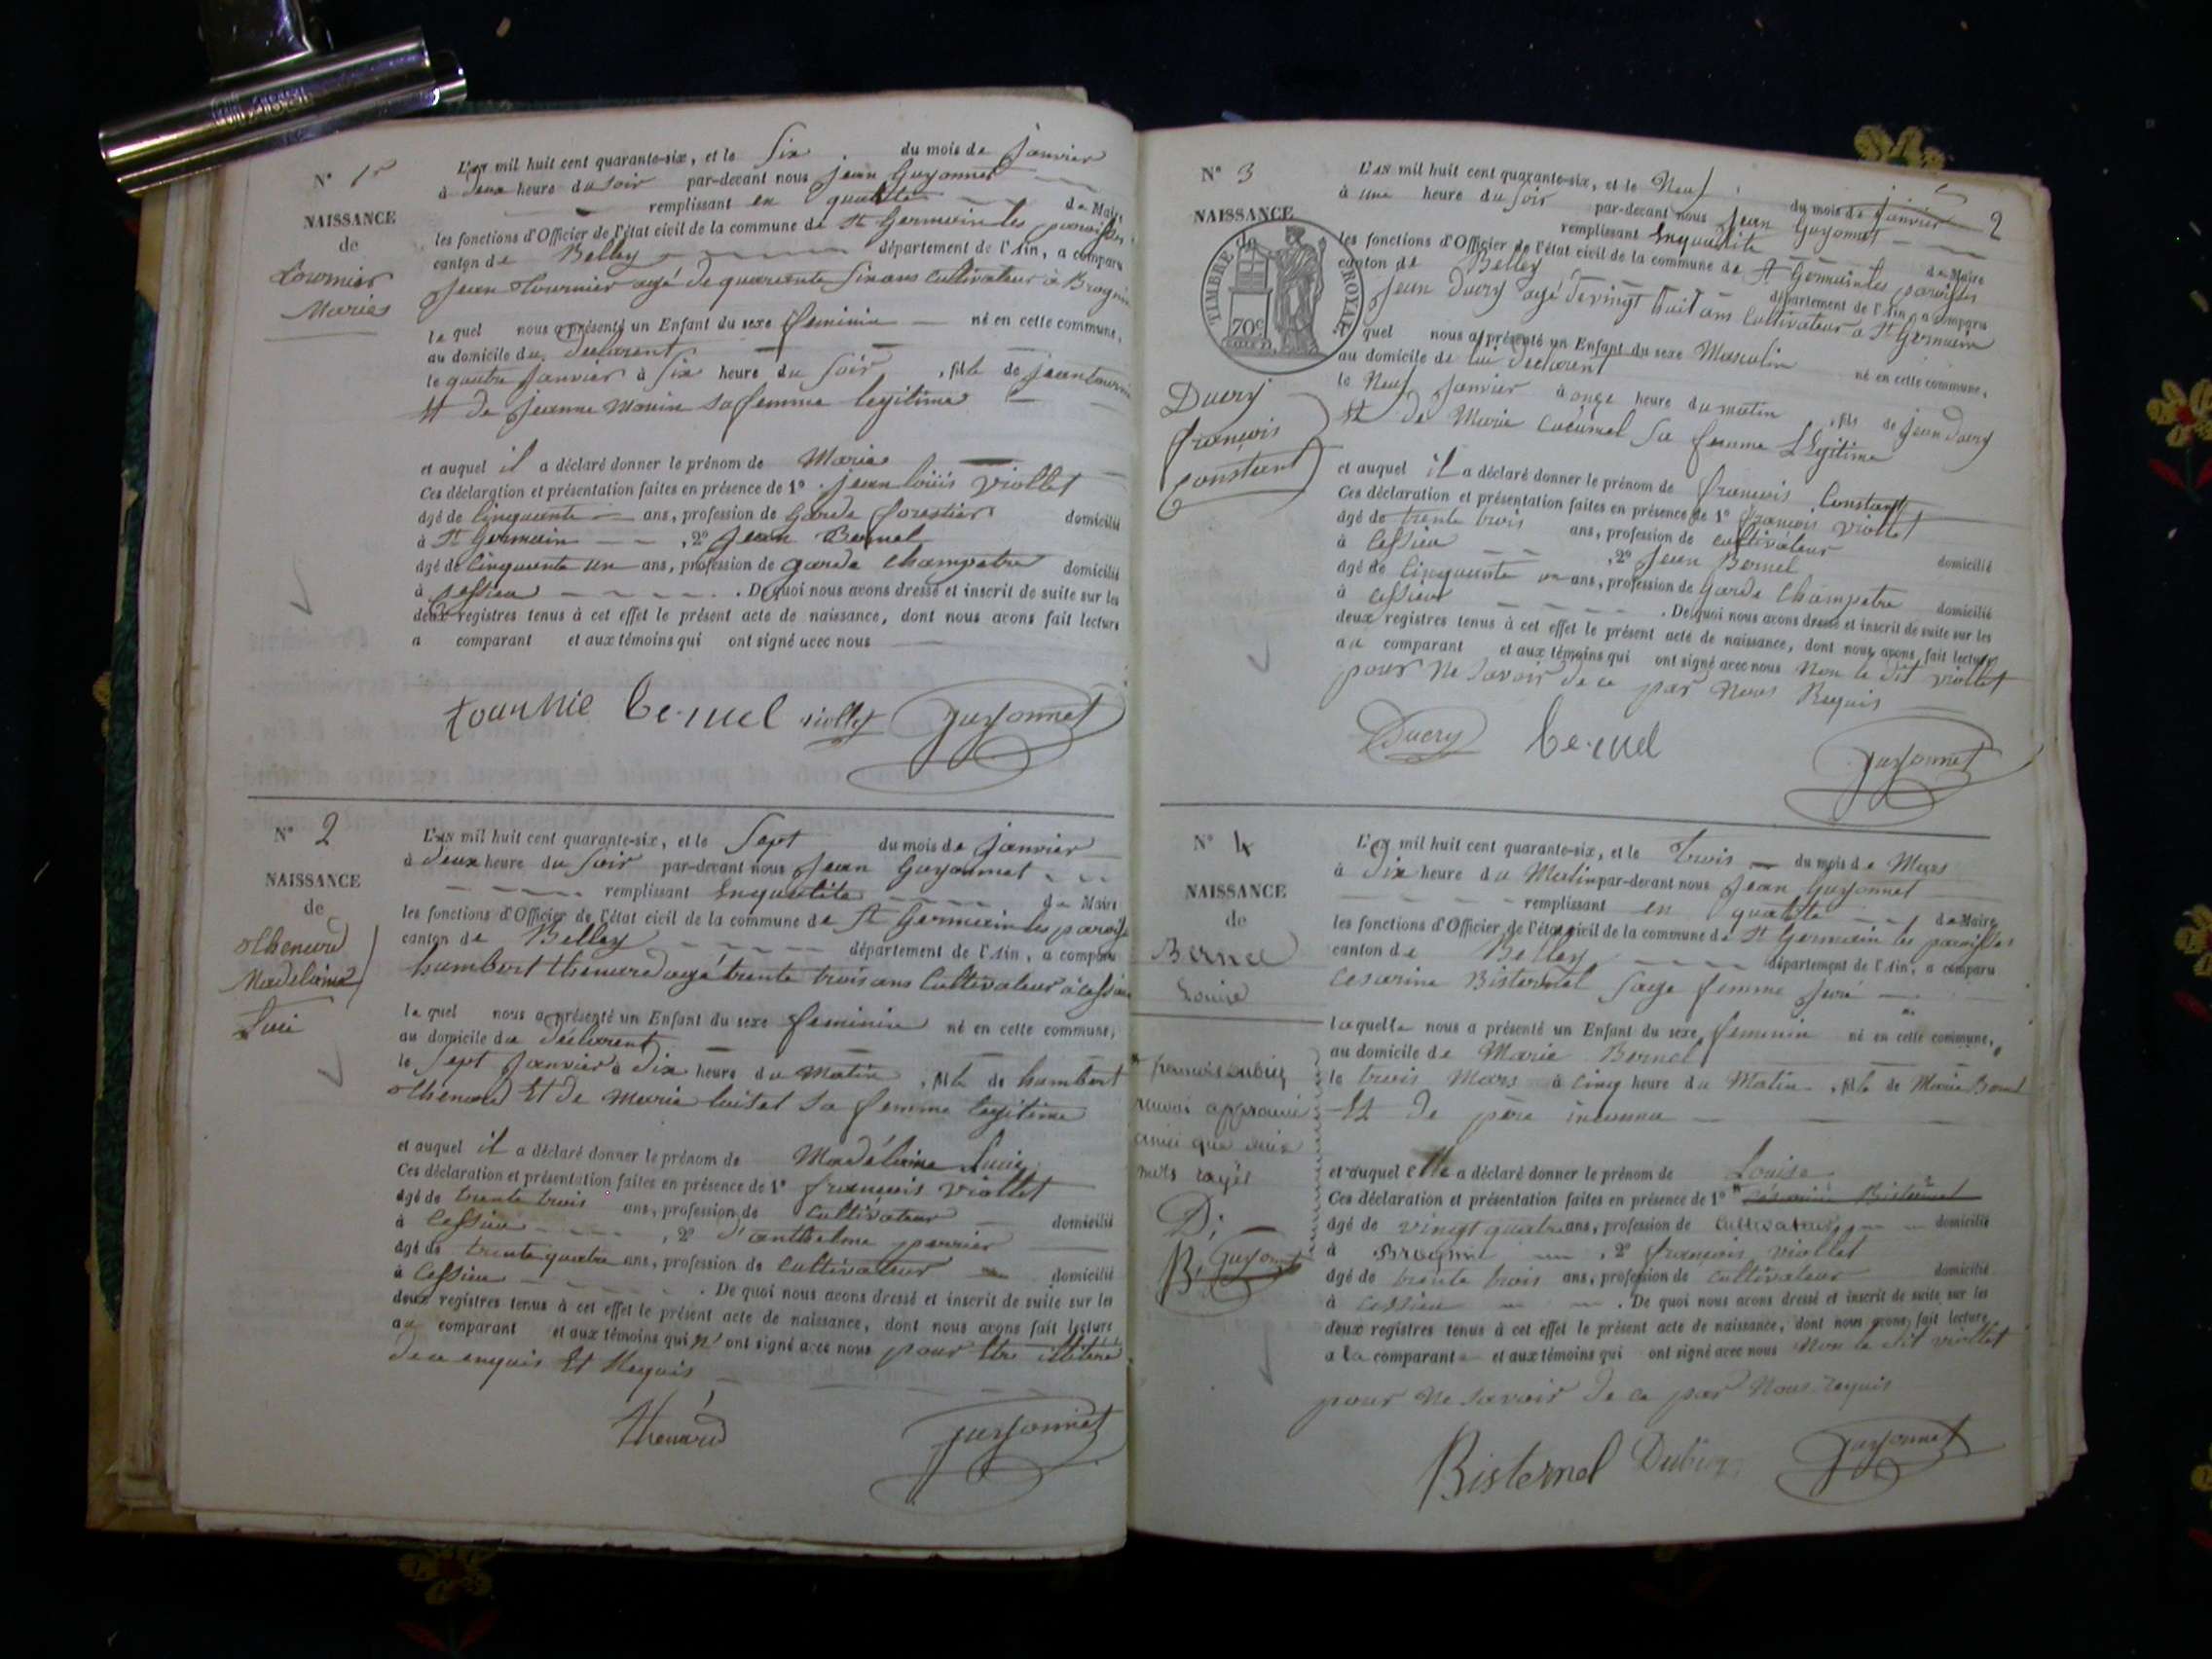 N° 1er
NAISSANCE
de
Tournier
Marie
L'an mil huit cent quarante-six, et le Six du mois de Janvier
à deux heure du Soir par-devant nous Jean Guyonnet
remplissant en qualité de Maire
les fonctions d'Officier de l'état civil de la commune de St Germain les paroisses
canton de Belley département de l'Ain, a comparu
Jean Tournier agé de quarante six ans Cultivateur à Brognin
lequel nous a présenté un Enfant du sexe feminin né en cette commune,
au domicile du declarent
le quatre Janvier à Six heure du Soir, fille de Jean Tournier
Et de Jeanne Monin Sa femme legitime
et auquel il a déclaré donner le prénom de Marie
Ces déclaration et présentation faites en présence de 1° Jean louis Viollet
âgé de Cinquante ans, profession de Garde forestier domicilié
à St Germain, 2° Jean Bernel
âgé de Cinquante un ans, profession de garde Champetre domicilié
à Cessieu. De quoi nous avons dressé et inscrit de suite sur les
deux registres tenus à cet effet le présent acte de naissance, dont nous avons fait lecture
a comparant et aux témoins qui ont signé avec nous
tournie bernel viollet Guyonnet
N° 2
NAISSANCE
de
Thenard
Madelaine
Luci
L'an mil huit cent quarante-six, et le Sept du mois de Janvier
à deux heure du Soir par-devant nous Jean Guyonnet
remplissant Enqualité de Maire
les fonctions d'Officier de l'état civil de la commune de St Germain les paroisse
canton de Belley département de l'Ain, a comparu
humbert thenard agé trente trois ans Cultivateur à Cessieu
lequel nous a présenté un Enfant du sexe feminin né en cette commune,
au domicile du déclarent
le Sept Janvier à dix heure du Matin, fille de humbert
thenard Et de Marie luiset Sa femme legitime
et auquel il a déclaré donner le prénom de Madélaine Lucie
Ces déclaration et présentation faites en présence de 1° françois Viollet
âgé de trente trois ans, profession de Cultivateur domicilié
à Cessieu, 2° d'anthelme perrier
âgé de trente quatre ans, profession de Cultivateur domicilié
à Cessieu. De quoi nous avons dressé et inscrit de suite sur les
deux registres tenus à cet effet le présent acte de naissance, dont nous avons fait lecture
au comparant et aux témoins qui n'ont signé avec nous pour Etre illitéré
de ce enquis Et Requis
thenard Guyonnet
2
N° 3
NAISSANCE
de
TIMBRE ROYAL
70c
Ducry
françois
Constant
L'an mil huit cent quarante-six, et le Neuf du mois de Janvier
à une heure du Soir par-devant nous Jean Guyonnet
remplissant Enqualité de Maire
les fonctions d'Officier de l'état civil de la commune de St Germain les paroisses
canton de Belley département de l'Ain a comparu
Jean Ducry agé de vingt huit ans Cultivateur a St Germain
quel nous a présenté un Enfant du sexe Masculin né en cette commune,
au domicile de lui declarent
le Neuf Janvier à onze heure du matin, fils de Jean Ducry
Et de Marie Sa femme Légitime
et auquel il a déclaré donner le prénom de françois Constant
Ces déclaration et présentation faites en présence de 1° françois viollet
âgé de trente trois ans, profession de cultivateur domicilié
à Cessieu, 2° Jean Bernel
âgé de Cinquante un ans, profession de Garde Champetre domicilié
à Cessieu. De quoi nous avons dressé et inscrit de suite sur les
deux registres tenus à cet effet le présent acte de naissance, dont nous avons fait lecture
au comparant et aux témoins qui ont signé avec nous Non le dit viollet
pour Ne Savoir de ce par Nous Requis
Ducry bernel Guyonnet
N° 4
NAISSANCE
de
Bernel
Louise
L'an mil huit cent quarante-six, et le trois du mois de Mars
à Dix heure du Matin par-devant nous Jean Guyonnet
remplissant en qualité de Maire
les fonctions d'Officier de l'état civil de la commune de St Germain les paroisses
canton de Belley département de l'Ain, a comparu
Cesarine Bisternel Sage femme Juré
laquelle nous a présenté un Enfant du sexe feminin né en cette commune,
au domicile de Marie Bernel
le trois Mars à Cinq heure du Matin, fille de Marie Bernel
Et de père inconnu
et auquel elle a déclaré donner le prénom de Louise
Ces déclaration et présentation faites en présence de 1° * Césarine Bisternel
âgé de vingt quatre ans, profession de Cultivateur domicilié
à Brognin, 2° françois viollet
âgé de trente trois ans, profession de cultivateur domicilié
à Cessieu. De quoi nous avons dressé et inscrit de suite sur les
deux registres tenus à cet effet le présent acte de naissance, dont nous avons fait lecture
a la comparante et aux témoins qui ont signé avec nous Non le dit viollet
pour Ne Savoir de ce par Nous requis
* françois
renvoi approuvé
ainsi que deux
mots rayés
D.
B. Guyonnet
Bisternel Guyonnet